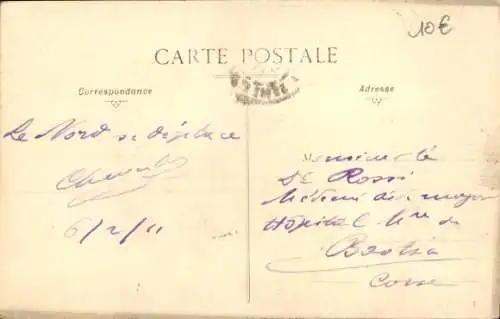 10€
CARTE POSTALE
Correspondance
Adresse
Le Nord se déplace
6/2/11
Monsieur le
De Rossi
Médecin aide major
Hôpital Mre de
Bastia
Corse